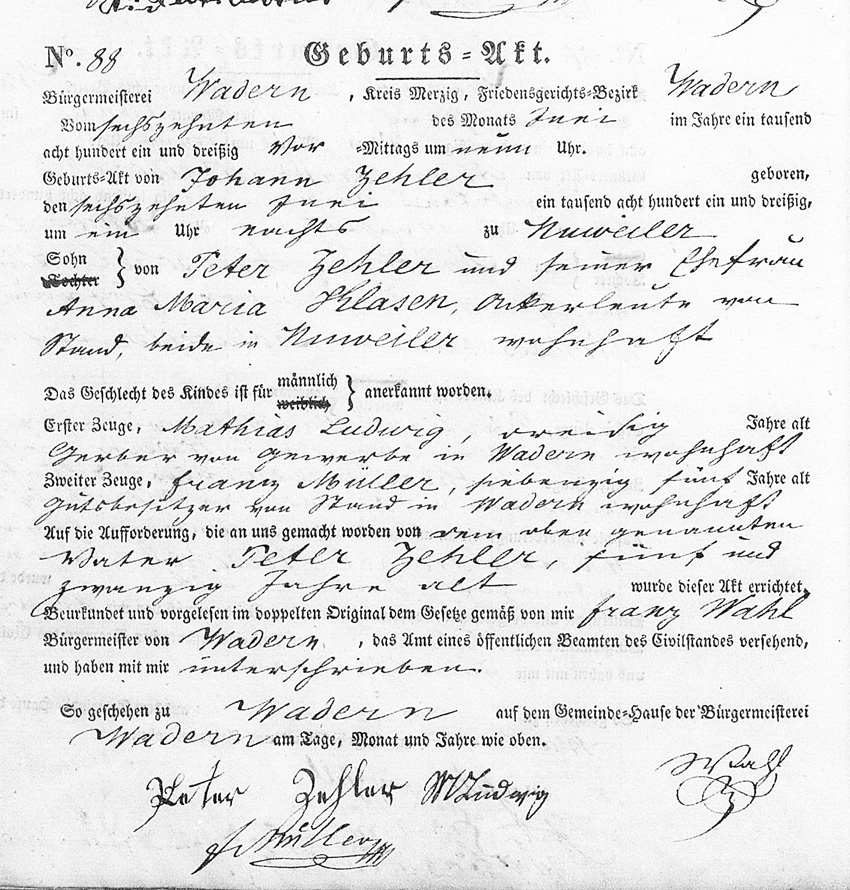 No. 88 Geburts-Akt.
Bürgermeisterei Wadern, Kreis Merzig, Friedensgerichts-Bezirk Wadern
Vom sechszehnten des Monats Juni im Jahre ein tausend
acht hundert ein und dreißig Vor-Mittags um neun Uhr.
Geburts-Akt von Johann Zehler geboren,
den sechszehnten Juni ein tausend acht hundert ein und dreißig,
um ein Uhr nachts zu Nuweiler
Sohn
Tochter } von Peter Zehler und seiner Ehefrau
Anna Maria Klasen, Ackerleute von
Stand, beide in Nuweiler wohnhaft
Das Geschlecht des Kindes ist für männlich
weiblich } anerkannt worden.
Erster Zeuge, Mathias Ludwig, dreißig Jahre alt
Gerber von Gewerbe in Wadern wohnhaft
Zweiter Zeuge, Franz Müller, siebenzig fünf Jahre alt
Gutsbesitzer von Stand in Wadern wohnhaft
Auf die Aufforderung, die an uns gemacht worden von dem oben genannten
Vater Peter Zehler, fünf und
zwanzig Jahre alt wurde dieser Akt errichtet,
Beurkundet und vorgelesen im doppelten Original dem Gesetze gemäß von mir Franz Wahl
Bürgermeister von Wadern, das Amt eines öffentlichen Beamten des Civilstandes versehend,
und haben mit mir unterschrieben.
So geschehen zu Wadern auf dem Gemeinde-Hause der Bürgermeisterei
Wadern am Tage, Monat und Jahre wie oben.
Peter Zehler MLudwig Wahl
f. Müller